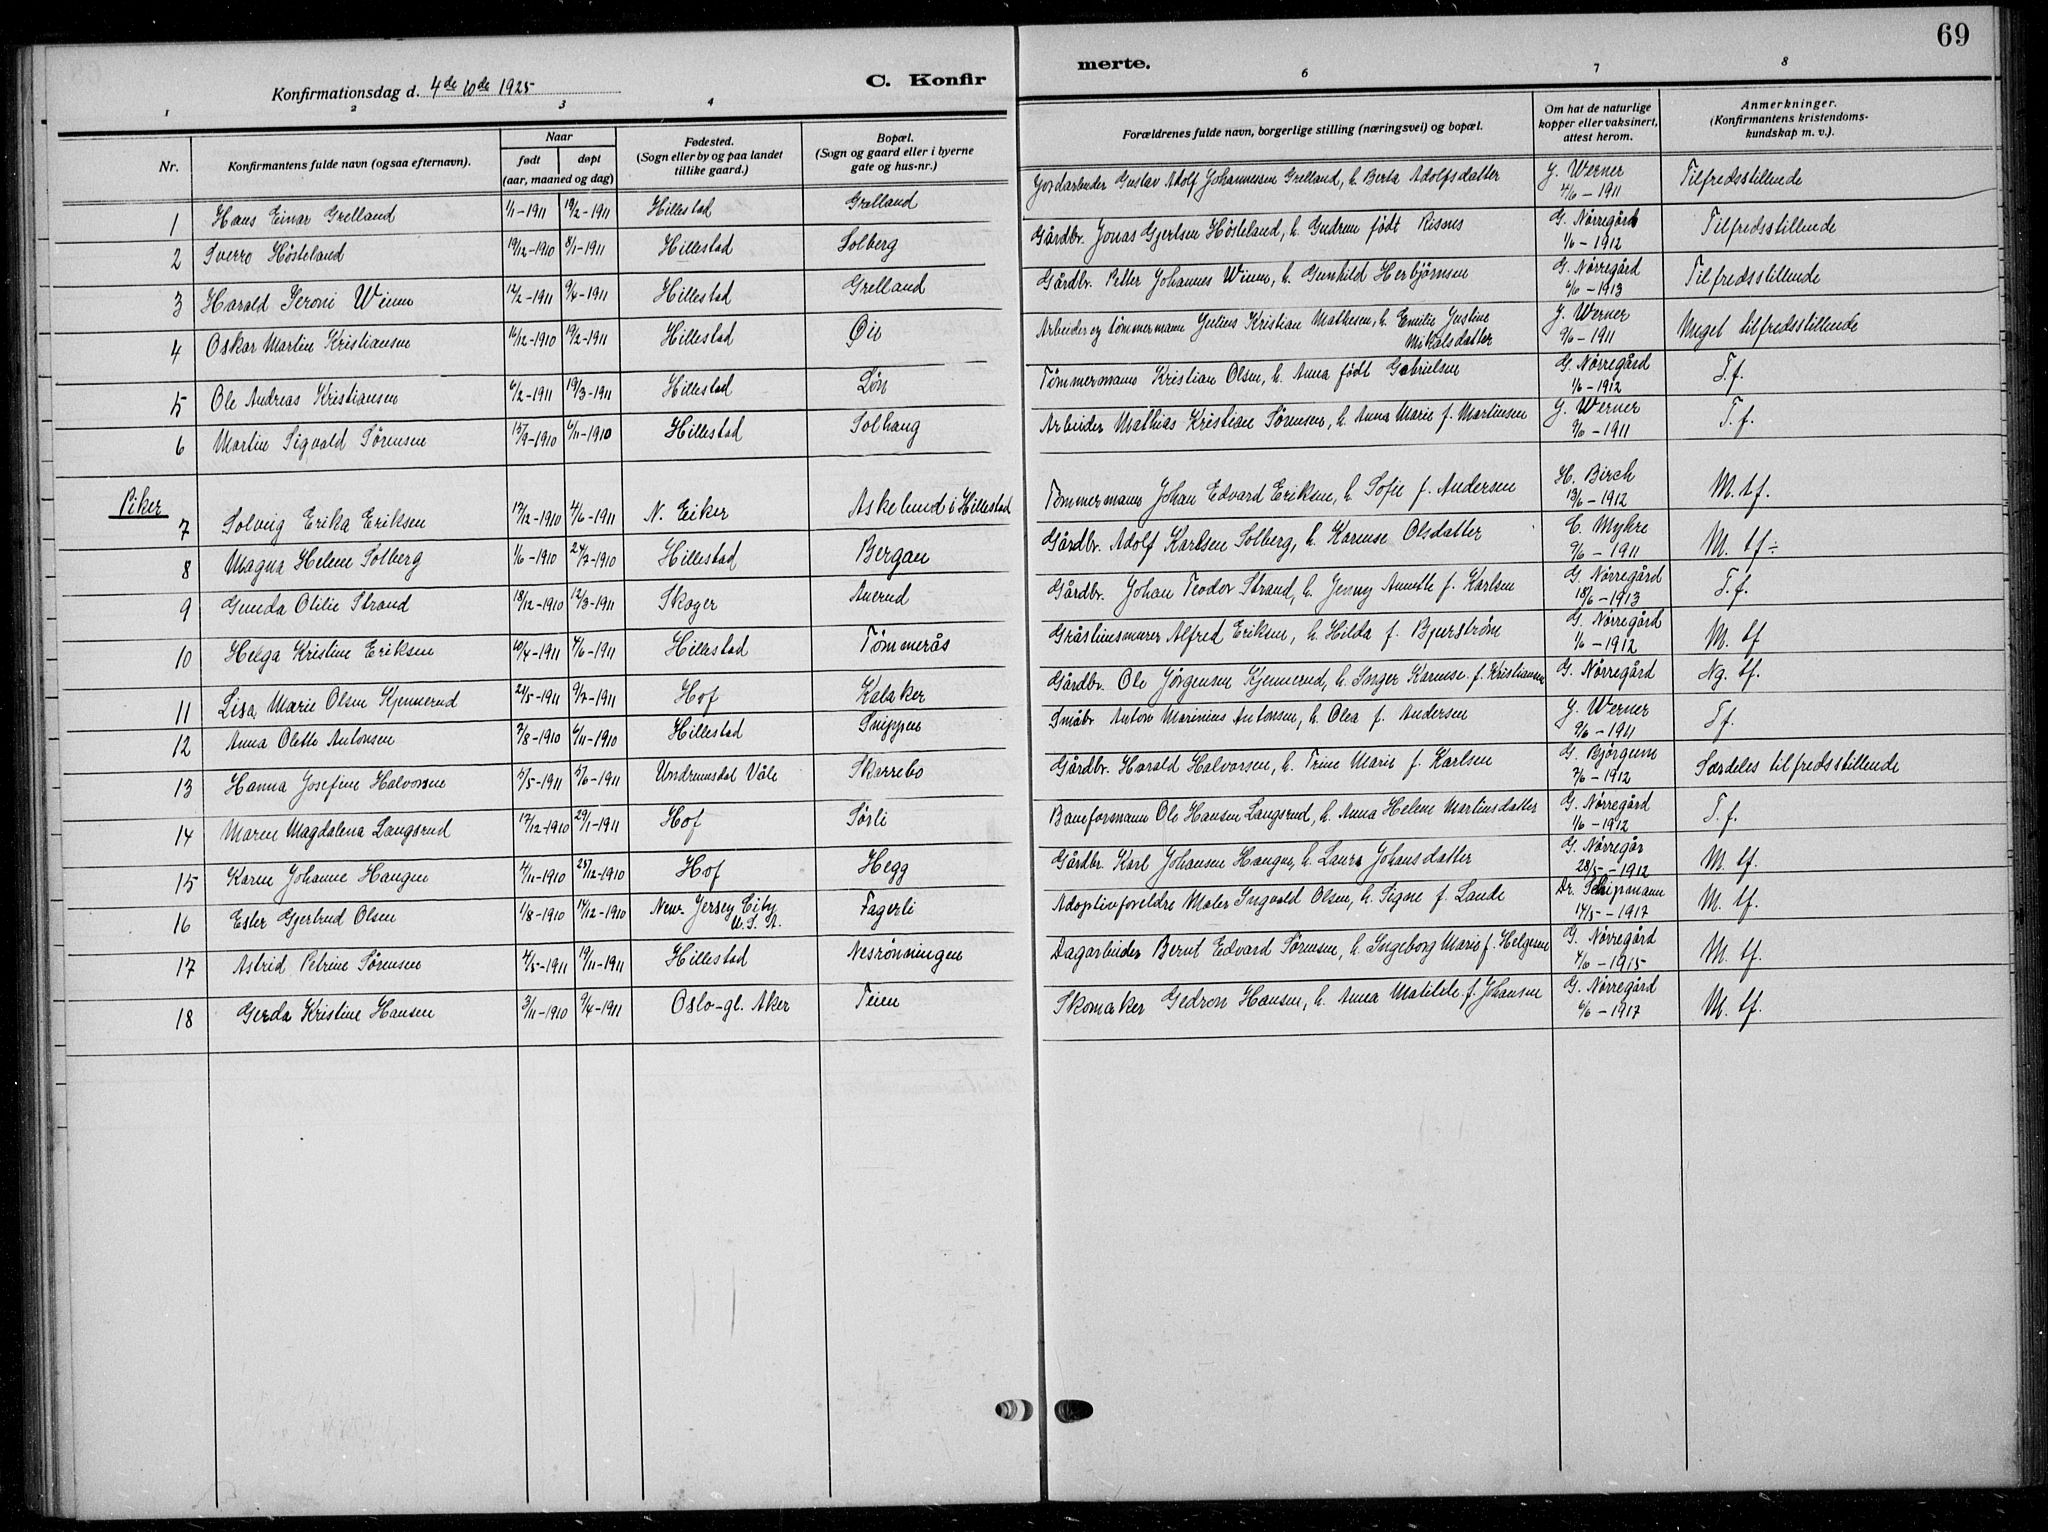 69
Konfirmationsdag d. 4de 10de 1925
C. Konfirmerte.
1 2 3 4 6 7 8
Nr.
Konfirmantens fulde navn (ogsaa efternavn).
Naar
født døpt
(aar, maaned og dag)
Fødested.
(Sogn eller by og paa landet
tillike gaard.)
Bopæl.
(Sogn og gaard eller i byerne
gate og hus-nr.)
Forældrenes fulde navn, borgerlige stilling (næringsvei) og bopæl.
Om hat de naturlige
kopper eller vaksinert,
attest herom.
Anmerkninger.
(Konfirmantens kristendoms-
kundskap m. v.).
1 Hans Einar Grelland 1/1-1911 19/2-1911 Hillestad Grelland Jordarbeider Gustav Adolf Johannessen Grelland, h. Berta Adolfsdatter J. Werner 4/6-1911 Tilfredsstillende
2 Sverro Høsteland 19/12-1910 8/1-1911 Hillestad Solberg Gårdbr. Jonas Gjertsen Høsteland, h. Gudrun født Risnes G. Nørregård 1/6-1912 Tilfredsstillende
3 Harald Ieroni Wium 12/2-1911 9/4-1911 Hillestad Grelland Gårdbr. Petter Johannes Wium, h. Gunhild Herbjørnsen G. Nørregård 6/6-1913 Tilfredsstillende
4 Oskar Martin Kristiansen 16/12-1910 19/2-1911 Hillestad Øie Arbeider og tømmermann Julius Kristian Mathesen, h. Emilie Justine Mikalsdatter J. Werner 9/6-1911 Meget tilfredsstillende
5 Ole Andreas Kristiansen 6/2-1911 19/3-1911 Hillestad Løn Tømmermann Kristian Olsen, h. Anna født Gabrielsen G. Nørregård 1/6-1912 T.f.
6 Martin Sigvald Sørensen 15/9-1910 6/11-1910 Hillestad Solhaug Arbeider Mathias Kristian Sørensen, h. Anna Marie f. Martinsen J. Werner 9/6-1911 T.f.
Piker
7 Solveig Erika Eriksen 17/12-1910 4/6-1911 N. Eiker Askelund i Hillestad Tømmermann Johan Edvard Eriksen, h. Sofie f. Andersen H. Birch 13/6-1912 M.tf.
8 Magna Helene Solberg 1/6-1910 24/7-1910 Hillestad Bergan Gårdbr. Adolf Karlsen Solberg, h. Karense Olsdatter C. Myhre 9/6-1911 M. tf÷
9 Gunda Otilie Strand 18/12-1910 12/3-1911 Skoger Auerud Gårdbr. Johan Teodor Strand, h. Jenny Annette f. Karlsen G. Nørregård 18/6-1913 T.f.
10 Helga Kristine Eriksen 10/4-1911 4/6-1911 Hillestad Tømmerås Gråstensmurer Alfred Eriksen, h. Hilda f. Bjurstrøm G. Nørregård 1/6-1912 M. tf
11 Lisa Marie Olsen Kjennerud 21/5-1911 9/7-1911 Hof Kalaker Gårdbr. Ole Jørgensen Kjennerud, h. Inger Karense f. Kristiansen G. Nørregård Ng. tf.
12 Anna Olette Antonsen 7/8-1910 6/11-1910 Hillestad Snippen Småbr. Anton Marinius Antonsen, h. Olea f. Andersen J. Werner 9/6-1911 Tf
13 Hanna Josefine Halvorsen 5/5-1911 5/6-1911 Undrumsdal Våle Skarrebo Gårdbr. Harald Halvorsen, h. Trine Marie f. Karlsen G. Bjørgum 7/6-1912 Særdeles tilfredsstillende
14 Maren Magdalena Langsrud 17/12-1910 29/1-1911 Hof Sørli Baneformann Ole Hansen Langsrud, h. Anna Helene Martinsdatter G. Nørregård 1/6-1912 T.f.
15 Karen Johanne Haugen 4/11-1910 25/12-1910 Hof Hegg Gårdbr. Karl Johansen Haugen, h. Laura Johansdatter G. Nørregår 28/5-1912 M. tf.
16 Ester Gjertrud Olsen 1/8-1910 14/12-1910 New-Jersey City U.S.A. Fagerli Adoptivforeldre Maler Ingvald Olsen, h. Signe f. Lande Dr. Schipmann 14/5-1917 M. tf.
17 Astrid Petrine Sørensen 4/5-1911 19/11-1911 Hillestad Nesrønningen Dagarbeider Bernt Edvard Sørensen, h. Ingeborg Marie f. Helgesen G. Nørregård 4/6-1915 M. tf.
18 Gerda Kristine Hansen 3/11-1910 9/4-1911 Oslo-gl. Aker Teien Skomaker Gedron Hansen, h. Anna Matilde f. Johansen G. Nørregård 6/6-1917 M. tf.